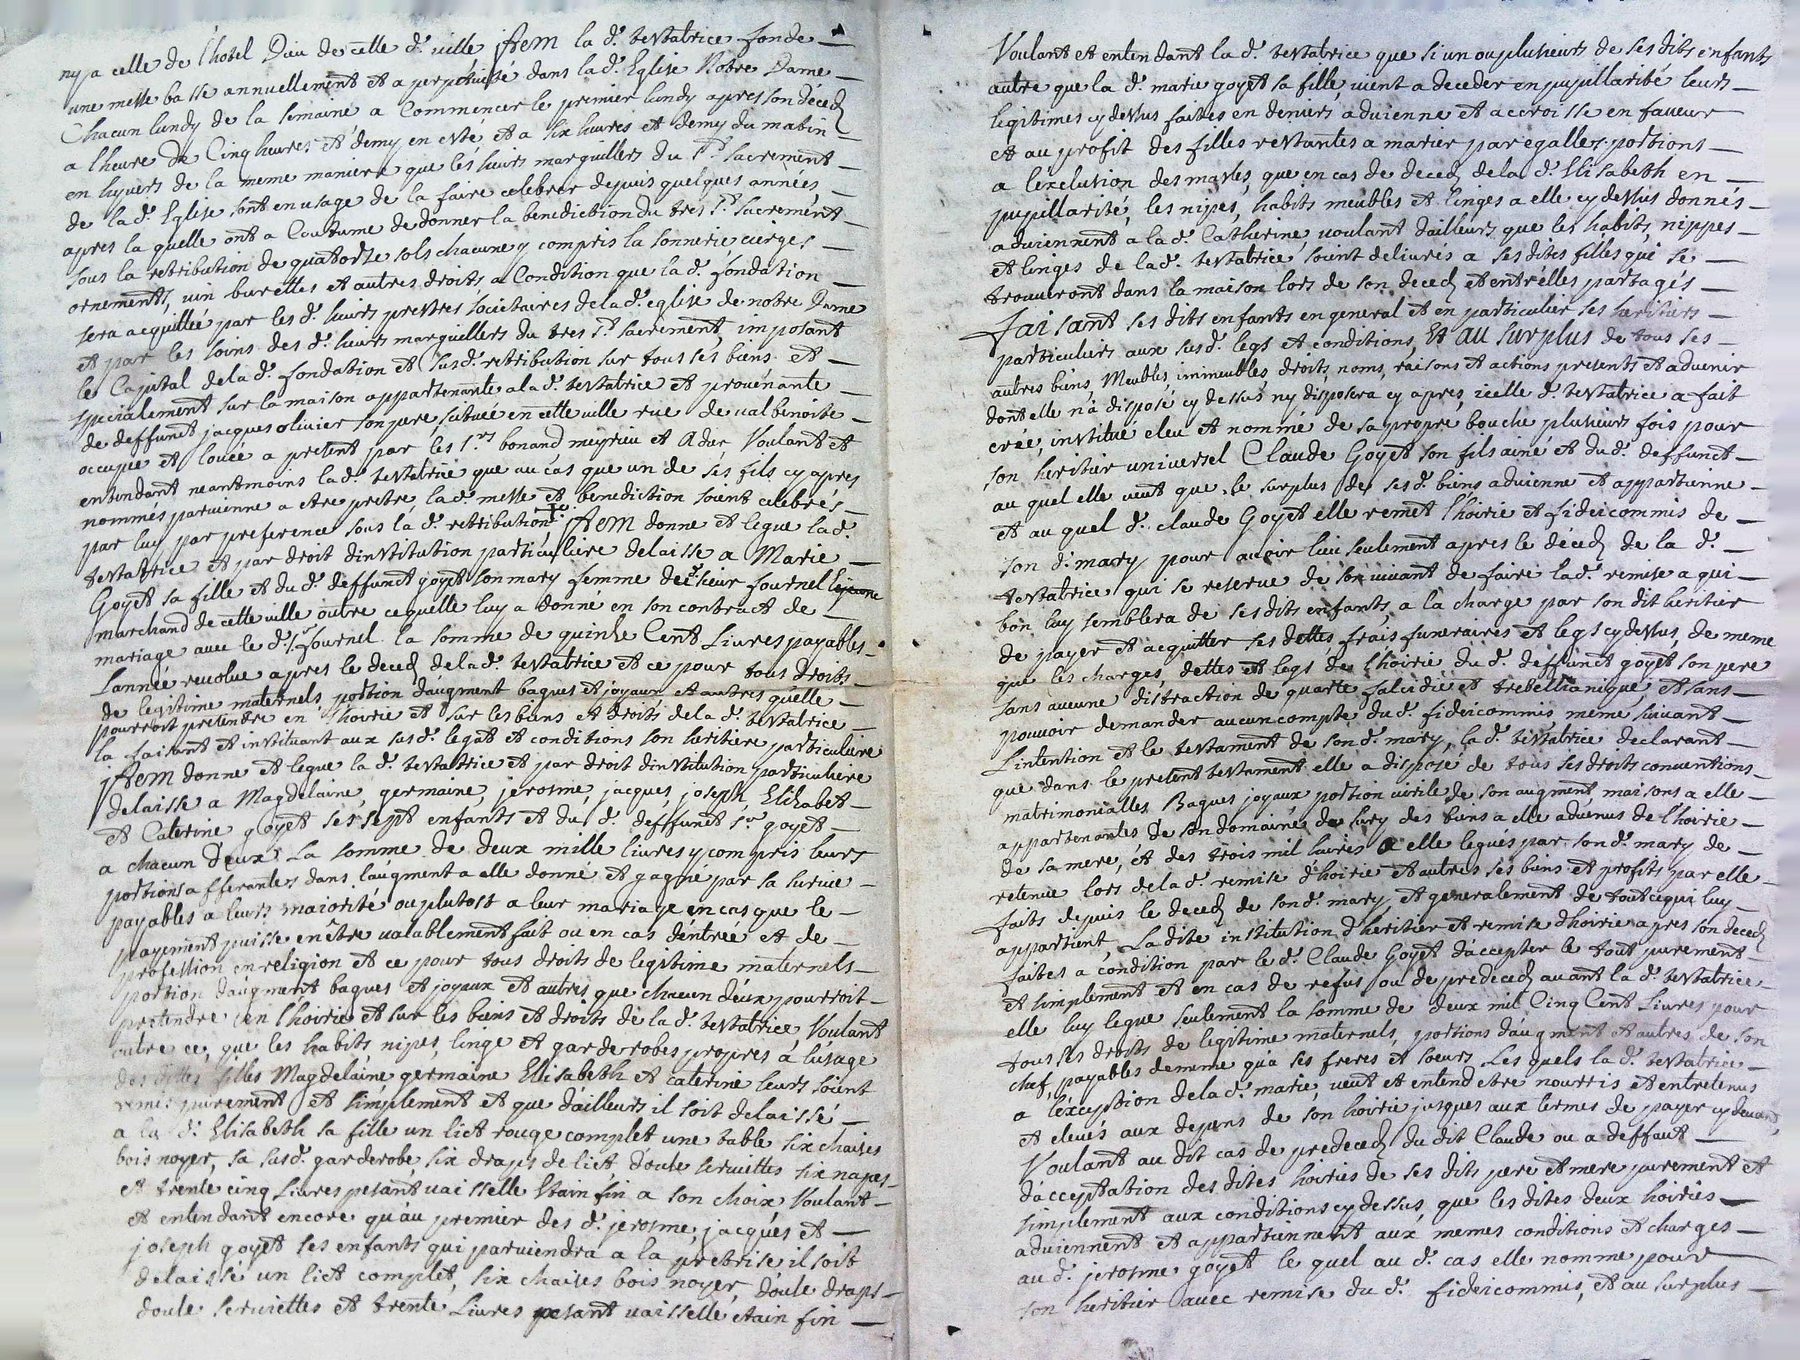 ny a celle de l'hotel Dieu de cette d.e ville Item la d.e testatrice fonde
une messe basse annuellement et a perpetuité dans la d.e Eglise Notre Dame
Chacun lundy de la semaine a Commencer le premier lundy apres son déced
a lheure de Cinq heures et demy en esté, et a six heures et demy du matin
en hyvert de la meme maniere que les sieurs marguilliers du St Sacrement
de la d.e Eglise sont en usage de la faire celebrer depuis quelques années,
apres la quelle ont a Coutume de donner la benediction du tres St Sacrement
sous la retribution de quatorze sols chacune y compris la sonnerie, cierges
ornements, vin burettes et autres droits a Condition que la d.e fondation
sera acquittée par les d. sieurs prestres societaires de la d.e eglise de notre Dame
et par les soins des d. sieurs marguilliers du tres St Sacrement, imposant
le Capital de la d.e fondation et susd.e retribution sur tous ses biens et
specialement sur la maison appartenante a la d.e testatrice et provenante
de deffunct jacques olivier son pere scituée en cette ville rue de valbenoite
occupée et louée a present par les s.rs bonand meyrieu et Voulant et
entendant neantmoins la d.e testatrice que au cas que un de ses fils cy apres
nommés parvienne a etre pretre, la d.e messe et benediction soient celebrés
par luy par preference sous la d.e retribution, Item donne et legue la d.e
testatrice et par droit dinstitution particuliere delaisse a Marie
Goyet sa fille et du d. deffunct goyet son mary femme de sieur fournel
marchand de cette ville outre ce quelle luy a donné en son contract de
mariage avec le d. s.r fournel la somme de quinze Cent Livres payables
Lannée revolue apres le deced de la d.e testatrice et ce pour tous droits
de legitime maternels portion daugment bagues et joyaux et autres quelle
pourroit pretendre en lhoirie et sur les biens et droits de la d.e testatrice
la faisant et instituant aux susd. legat et conditions son heritiere particuliere
Item donne et legue la d.e testatrice et par droit dinstitution particuliere
delaisse a Magdelaine, germaine, jerosme, jacques, joseph, Elizabet
et Caterine goyet ses sept enfants et du d. deffunct s.r goyet,
a chacun deux La somme de deux mille livres y compris leurs
portions afferantes dans laugment a elle donné et gagné par sa survie
payables a leurs majorité ou plutost a leur mariage en cas que le
payement puisse en être valablement fait ou en cas dentrée et de
profession en religion et ce pour tous droits de legitime maternels
portion daugment bagues et joyaux et autres que chacun deux pourroit
pretendre en lhoirie et sur les biens et droits de la d.e testatrice, Voulant
outre ce, que les habits nipes, linge et garderobes propres a lusage
des dittes filles Magdelaine, germaine Elisabeth et caterine leurs soient
remis purement et simplement et que dailleurs il soit delaissé
a la d.e Elisabeth sa fille un lict rouge complet une table six chaises
bois noyer, sa susd.e garderobe six draps de lict doule serviettes six napes
et trente cinq Livres pesant vaisselle Etain fin a son choix, Voulant
et entendant encore qu'au premier des d. jerosme, jacques et
joseph goyet ses enfants qui parviendra a la pretrise il soit
delaissé un lict complet, six chaises bois noyer, doule draps
doule serviettes et trente Livres pesant vaisselle etain fin
Voulant et entendant la d.e testatrice que si un ou plusieurs de ses dits enfants
autre que la d.e marie goyet sa fille, vient a deceder en pupillarité leurs
legitimes cy dessus faites en deniers advienne et accroisse en faveur
et au profit des filles restantes a marier par egalles portions
a lexclusion des masles, que en cas de deced de la d.e Elisabeth en
pupillarité, les nipes, habits meubles et linges a elle cy dessus donnés
adviennent a la d.e Catherine, voulant dailleurs que les habits, nippes
et linges de la d.e testatrice soient delivrés a ses dites filles qui se
trouveront dans la maison lors de son deced et entrelles partagés
faisant ses dits enfants en general et en particulier ses heritiers
particuliers aux susd. legs et conditions, Et au surplus de tous ses
autres biens, Meubles, immeubles droits, noms, raisons et actions presents et advenir
dont elle n'a disposé cy dessus ny disposera cy apres, icelle d.e testatrice a fait
créé, institué eleu et nommé de sa propre bouche plusieurs fois pour
son heritier universel Claude Goyet son fils ainé et dud. deffunct
au quel elle veut que le surplus de ses d. biens advienne et appartienne
et au quel d. claude Goyet elle remet lhoirie et fideicommis de
son d. mary pour avoir lieu seulement apres le déced de la d.e
testatrice qui se reserve de son vivant de faire la d.e remise a qui
bon luy semblera de ses dits enfants, a la charge par son dit heritier
de payer et acquitter ses dettes, frais funeraires et legs cy dessus, de meme
que les charges, dettes et legs de lhoirie du d. deffunct goyet son pere
sans aucune distraction de quarte falcidie et trebellianique, et sans
pouvoir demander aucun compte du d. fideicommis meme suivant
Lintention et le testament de son d. mary, la d.e testatrice declarant
que dans le present testament elle a disposé de tous ses droits conventions
matrimonialles Bagues joyaux portion virile de son augment, maisons a elle
appartenantes de son domaine de sury des biens a elle advenus de lhoirie
de sa mere, et des trois mil livres a elle legués par son d. mary de
retenue lors de la d.e remise dhoirie et autres ses biens et profits par elle
faits depuis le deced de son d. mary et generalement de tout ce qui luy
appartient, La dite institution dheritier et remise dhoirie apres son deced
faites a condition par le d. Claude Goyet daccepter le tout purement
et simplement et en cas de refus ou de predeced avant la d.e testatrice
elle luy legue seulement la somme de deux mil Cinq Cent Livres pour
tous ses droits de legitime maternels, portions daugment et autres de son
chef, payables de meme qu'a ses freres et soeurs Les quels la d.e testatrice
a lexception de la d.e marie, veut et entend etre nourris et entretenus
et elevés aux depens de son hoirie jusques aux termes de payer cy devant,
Voulant au dit cas de predeced du dit Claude ou a deffaut
dacceptation des dites hoiries de ses dits pere et mere purement et
simplement aux conditions cy dessus, que les dites deux hoiries
adviennent et appartiennent aux memes conditions et charges
au d. jerosme goyet le quel au d. cas elle nomme pour
son heritier avec remise du d. fideicommis, et au surplus